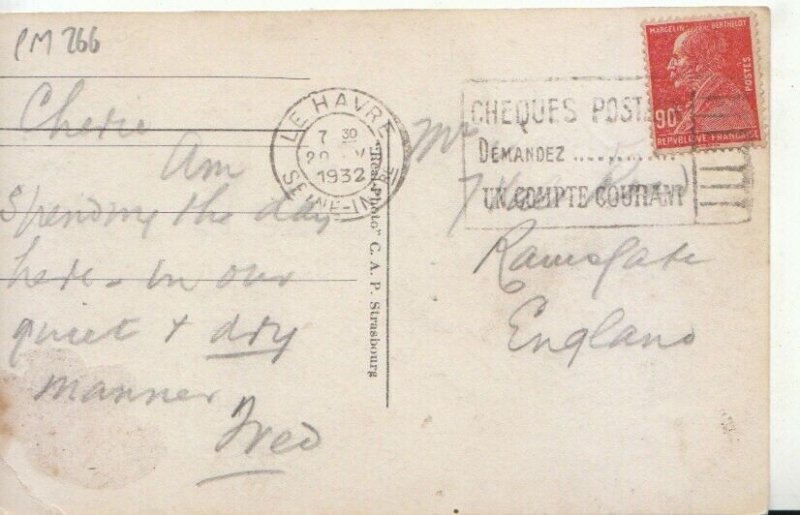 PM 266
Cherie
Am
Spending the day
here - in our
quiet & dry
manner
Fred
"Real-Photo" C. A. P. Strasbourg
LE HAVRE
7 30
1932
SEINE-INFRE
CHEQUES POST
DEMANDEZ ...........
UN COMPTE COURANT
MARCELIN BERTHELOT
POSTES
90c
REPVBLIQVE FRANCAISE
Mr
7
Ramsgate
England